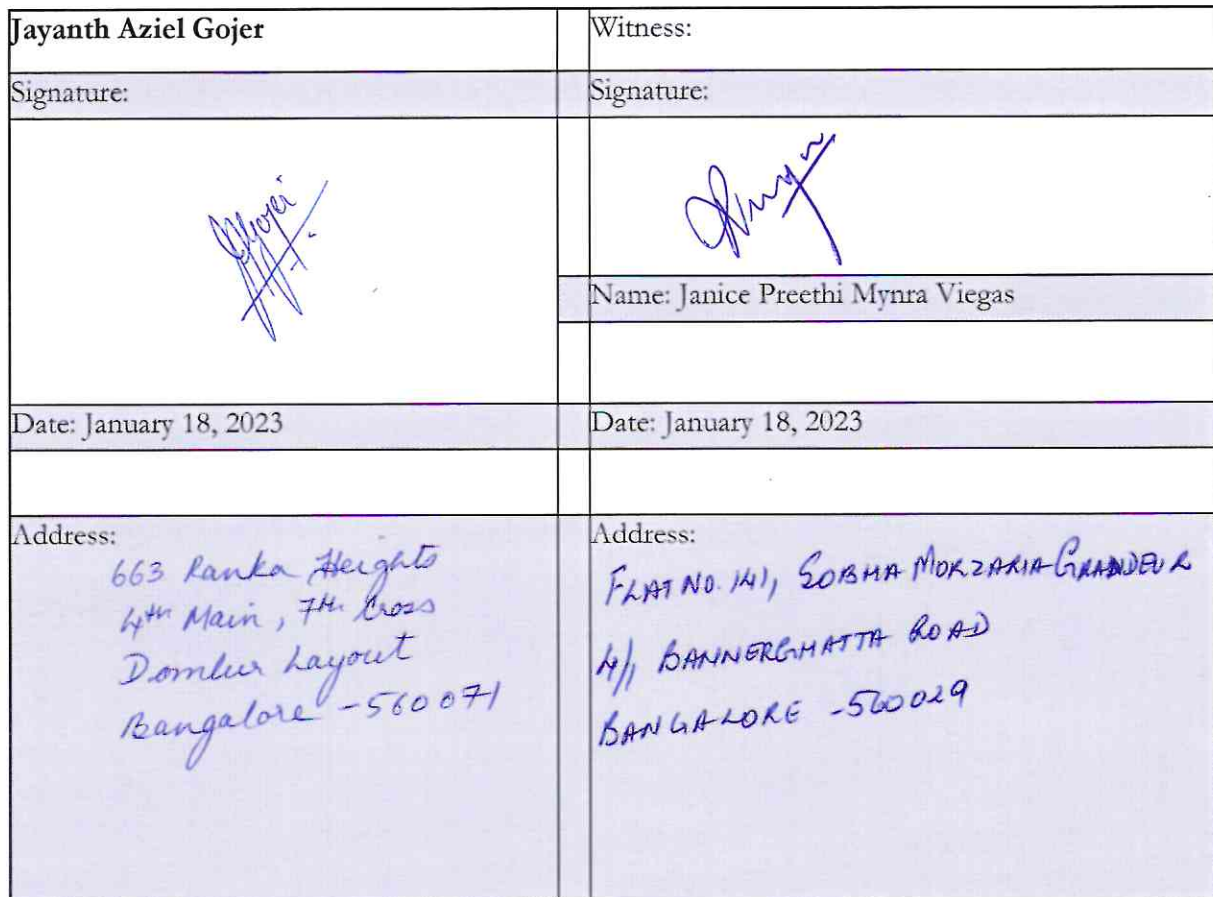 Jayanth Aziel Gojer
Witness:
Signature:
Signature:
Name: Janice Preethi Mynra Viegas
Date: January 18, 2023
Date: January 18, 2023
Address:
663 Ranka Heights
4th Main, 7th Cross
Domlur Layout
Bangalore - 560071
Address:
FLAT NO. 141, SOBHA MORZARIA GRANDEUR
4/1, BANNERGHATTA ROAD
BANGALORE - 560029